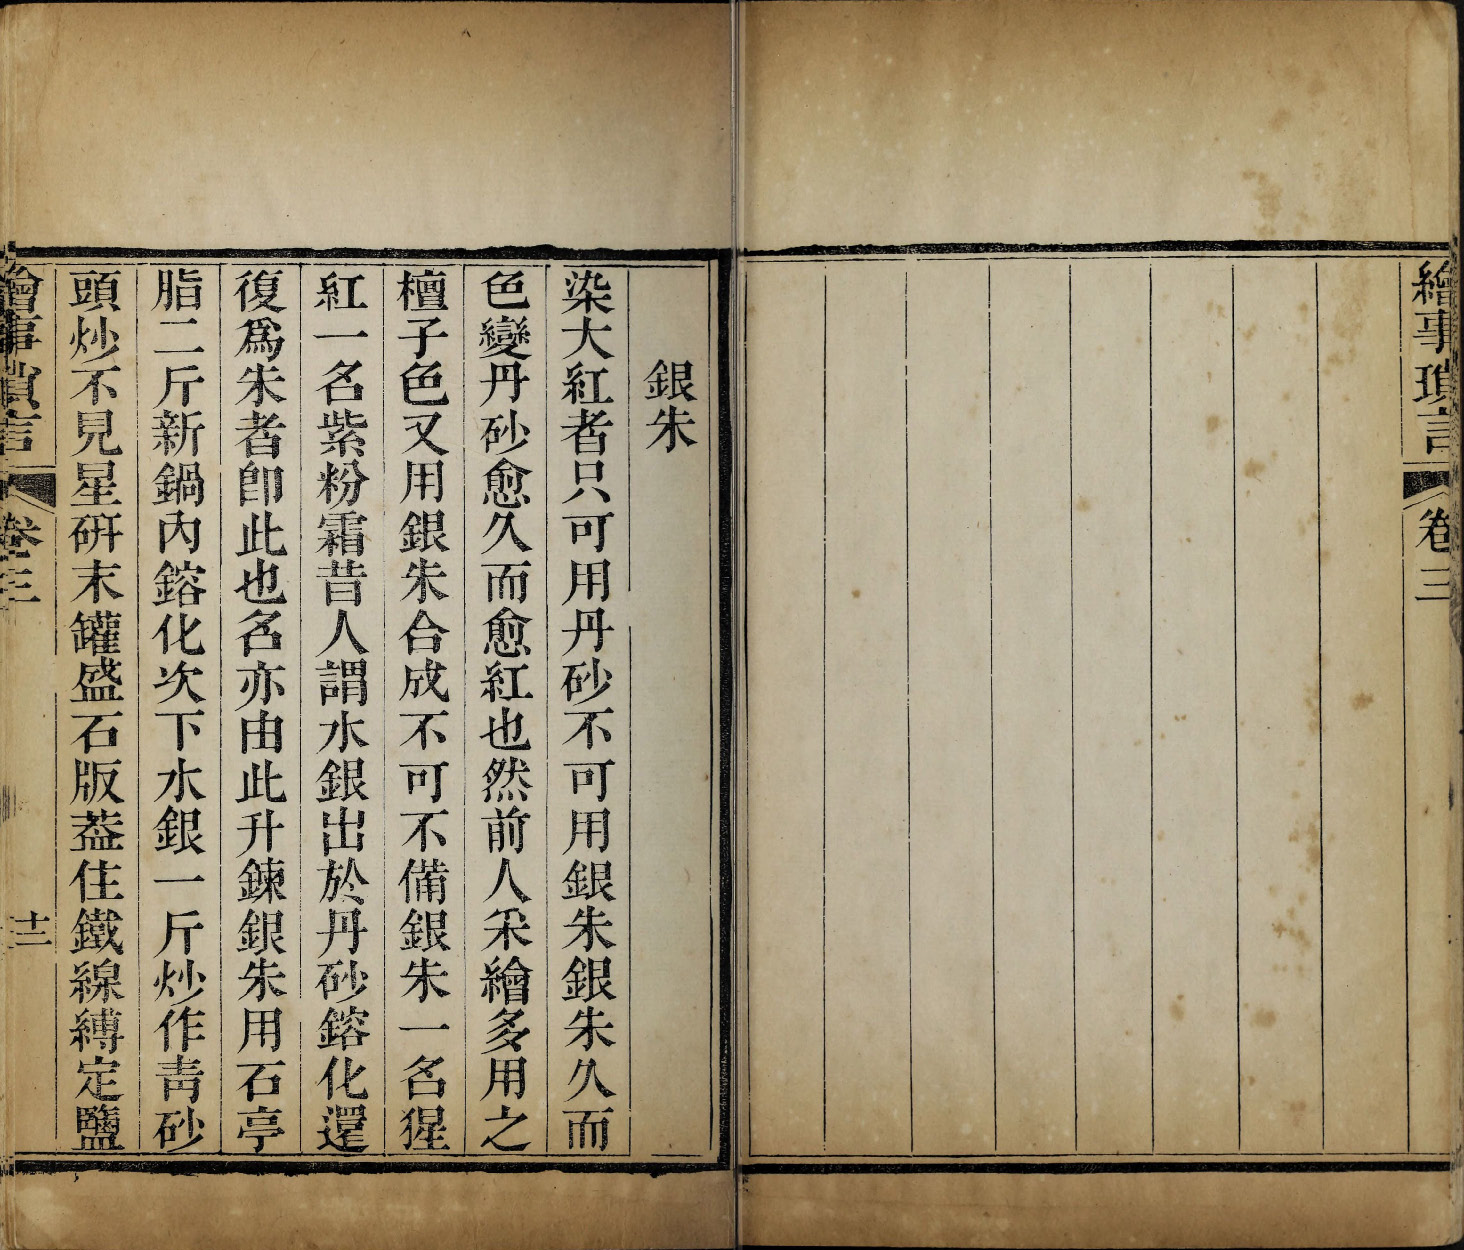 繪事瑣言
卷三
銀朱
染大紅者只可用丹砂不可用銀朱銀朱久而
色變丹砂愈久而愈紅也然前人采繪多用之
檀子色又用銀朱合成不可不備銀朱一名猩
紅一名紫粉霜昔人謂水銀出於丹砂鎔化還
復爲朱者卽此也名亦由此升鍊銀朱用石亭
脂二斤新鍋內鎔化次下水銀一斤炒作靑砂
頭炒不見星硏末罐盛石版葢住鐵線縛定鹽
繪事瑣言
卷三
十二